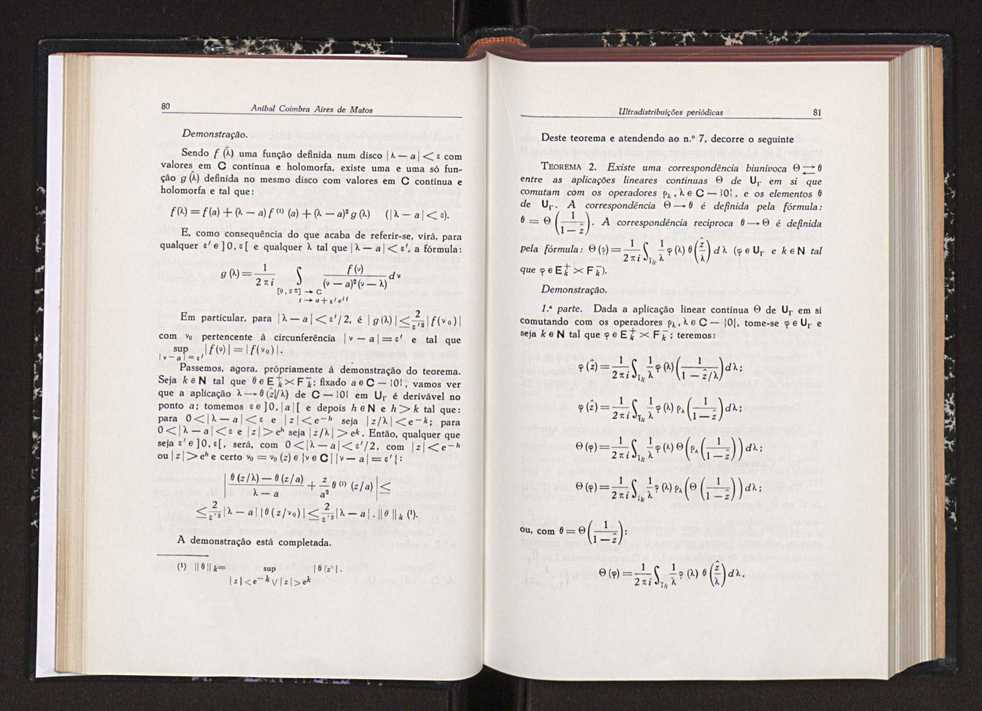 80 Aníbal Coimbra Aires de Matos
Demonstração.
Sendo f (λ̂) uma função definida num disco | λ — a | < ε com
valores em C contínua e holomorfa, existe uma e uma só fun-
ção g (λ̂) definida no mesmo disco com valores em C contínua e
holomorfa e tal que:
f (λ) = f (a) + (λ — a) f ⁽¹⁾ (a) + (λ — a)² g (λ) ( | λ — a | < ε).
E, como consequência do que acaba de referir-se, virá, para
qualquer ε′ e ] 0, ε [ e qualquer λ tal que | λ — a | < ε′, a fórmula:
g (λ) = 1/(2 π i) ∫ f (ν)/((ν — a)² (ν — λ)) d ν
[0, 2 π] → C
t → a + ε′ eⁱᵗ
Em particular, para | λ — a | < ε′/2, é | g (λ) | ≤ 2/ε′² | f (ν₀) |
com ν₀ pertencente à circunferência | ν — a | = ε′ e tal que
sup | f (ν) | = | f (ν₀) |.
| ν — a | = ε′
Passemos, agora, pròpriamente à demonstração do teorema.
Seja k e N tal que θ e E⁺ₖ × F⁻ₖ; fixado a e C — {0}, vamos ver
que a aplicação λ → θ (ẑ/λ) de C — {0} em U_Γ é derivável no
ponto a; tomemos ε e ] 0, | a | [ e depois h e N e h > k tal que:
para 0 < | λ — a | < ε e | z | < e⁻ʰ seja | z/λ | < e⁻ᵏ; para
0 < | λ — a | < ε e | z | > eʰ seja | z/λ | > eᵏ. Então, qualquer que
seja ε′ e ] 0, ε [, será, com 0 < | λ — a | < ε′/2, com | z | < e⁻ʰ
ou | z | > eʰ e certo ν₀ = ν₀ (z) e { ν e C | | ν — a | = ε′ }:
| (θ (z/λ) — θ (z/a))/(λ — a) + z/a² θ ⁽¹⁾ (z/a) | ≤
≤ 2/ε′² | λ — a | | θ (z/ν₀) | ≤ 2/ε′² | λ — a | . || θ || ₖ (¹).
A demonstração está completada.
(¹) || θ || ₖ = sup | θ (z) | .
| z | < e⁻ᵏ ∨ | z | > eᵏ
Ultradistribuições periódicas 81
Deste teorema e atendendo ao n.º 7, decorre o seguinte
TEOREMA 2. Existe uma correspondência biunívoca Θ ⇄ θ
entre as aplicações lineares contínuas Θ de U_Γ em si que
comutam com os operadores ρ_λ, λ e C — {0}, e os elementos θ
de U_Γ. A correspondência Θ → θ é definida pela fórmula:
θ = Θ (1/(1 — ẑ)). A correspondência recíproca θ → Θ é definida
pela fórmula: Θ (φ) = 1/(2 π i) ∫_Iₖ 1/λ φ (λ) θ (ẑ/λ) d λ (φ e U_Γ e k e N tal
que φ e E⁺ₖ × F⁻ₖ).
Demonstração.
1.ª parte. Dada a aplicação linear contínua Θ de U_Γ em si
comutando com os operadores ρ_λ, λ e C — {0}, tome-se φ e U_Γ e
seja k e N tal que φ e E⁺ₖ × F⁻ₖ; teremos:
φ (ẑ) = 1/(2 π i) ∫_Iₖ 1/λ φ (λ) (1/(1 — ẑ/λ)) d λ;
φ (ẑ) = 1/(2 π i) ∫_Iₖ 1/λ φ (λ) ρ_λ (1/(1 — ẑ)) d λ;
Θ (φ) = 1/(2 π i) ∫_Iₖ 1/λ φ (λ) Θ (ρ_λ (1/(1 — ẑ))) d λ;
Θ (φ) = 1/(2 π i) ∫_Iₖ 1/λ φ (λ) ρ_λ (Θ (1/(1 — ẑ))) d λ;
ou, com θ = Θ (1/(1 — ẑ)):
Θ (φ) = 1/(2 π i) ∫_Iₖ 1/λ φ (λ) θ (ẑ/λ) d λ.